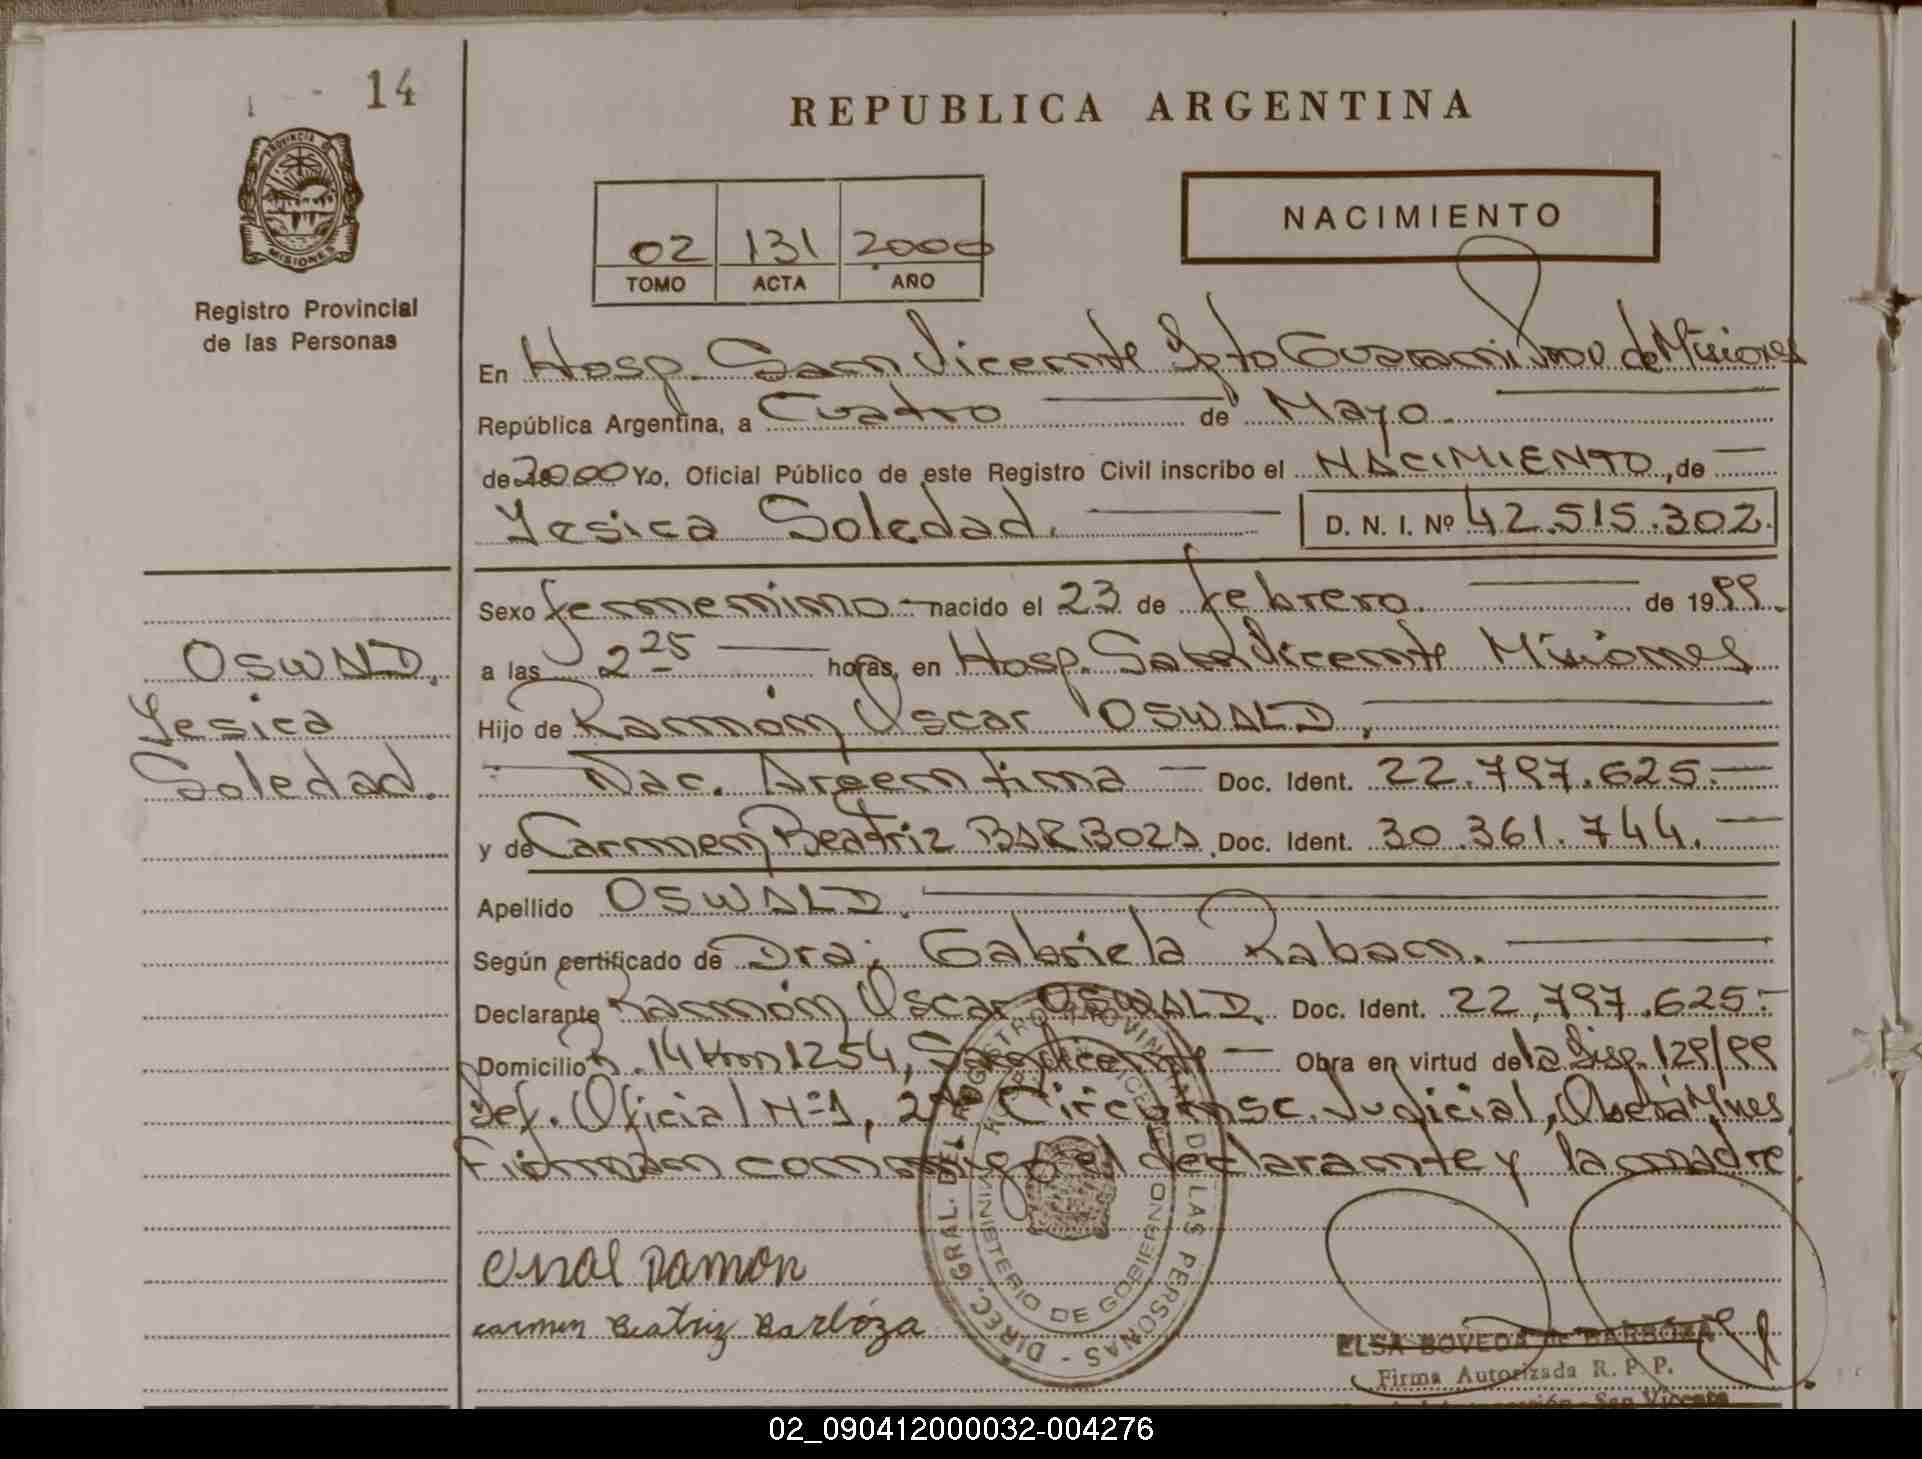 14
PROVINCIA DE
MISIONES
Registro Provincial
de las Personas
REPUBLICA ARGENTINA
02 131 2000
TOMO ACTA AÑO
NACIMIENTO
En Hosp. San Vicente Dpto Guarani Prov. de Misiones
República Argentina, a Cuatro de Mayo
de 2000 Yo, Oficial Público de este Registro Civil inscribo el NACIMIENTO, de
Yesica Soledad. D. N. I. Nº 42.515.302.
Sexo femenino nacido el 23 de febrero. de 1999.
a las 2 25 horas, en Hosp. San Vicente Misiones
Hijo de Ramón Oscar OSWALD,
Nac. Argentina Doc. Ident. 22.797.625.
y de Carmen Beatriz BARBOZA, Doc. Ident. 30.361.744.
Apellido OSWALD.
Según certificado de Dra. Gabriela Raban.
Declarante Ramón Oscar OSWALD. Doc. Ident. 22.797.625.
Domicilio R. 14 Km 1254, San Vicente Obra en virtud de la Disp. 129/99
Def. Oficial Nº 1, 2da Circunsc. Judicial, Oberá Mnes
Firman conmigo el declarante y la madre
OSWALD.
Yesica
Soledad.
Ramon
carmen Beatriz Barboza
DIREC. GRAL. DEL REGISTRO PROVINCIAL DE LAS PERSONAS
MINISTERIO DE GOBIERNO
ELSA BOVEDA de BARBOZA
Firma Autorizada R. P. P.
San Vicente
02_090412000032-004276